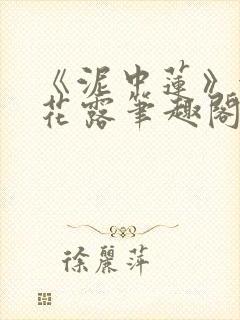 《泥中蓮》
花露筆趣閣
徐麗萍